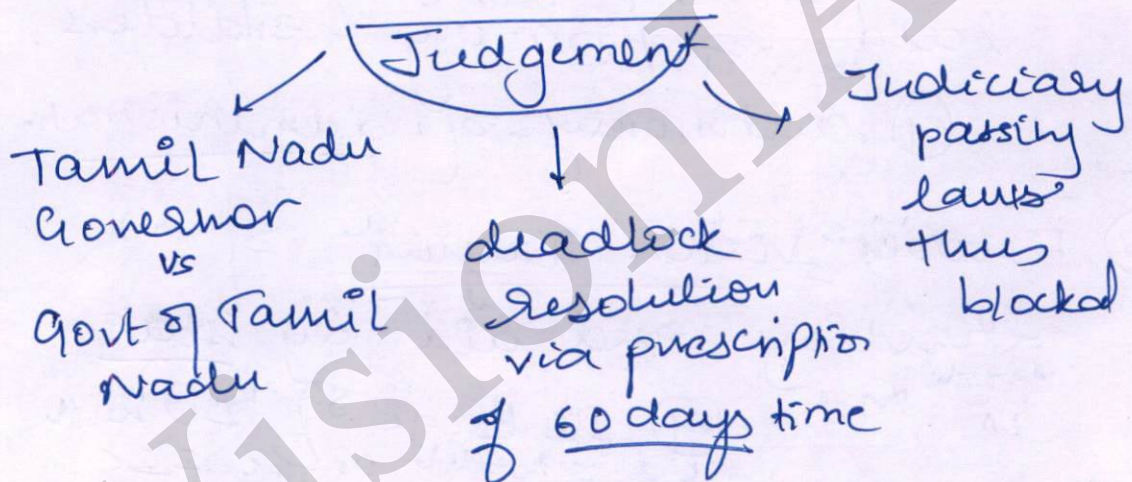 Judgement
Tamil Nadu
Governor
vs
Govt of Tamil
Nadu
deadlock
resolution
via prescription
of 60 days time
Judiciary
passing
laws
thus
blocked
VisionIA